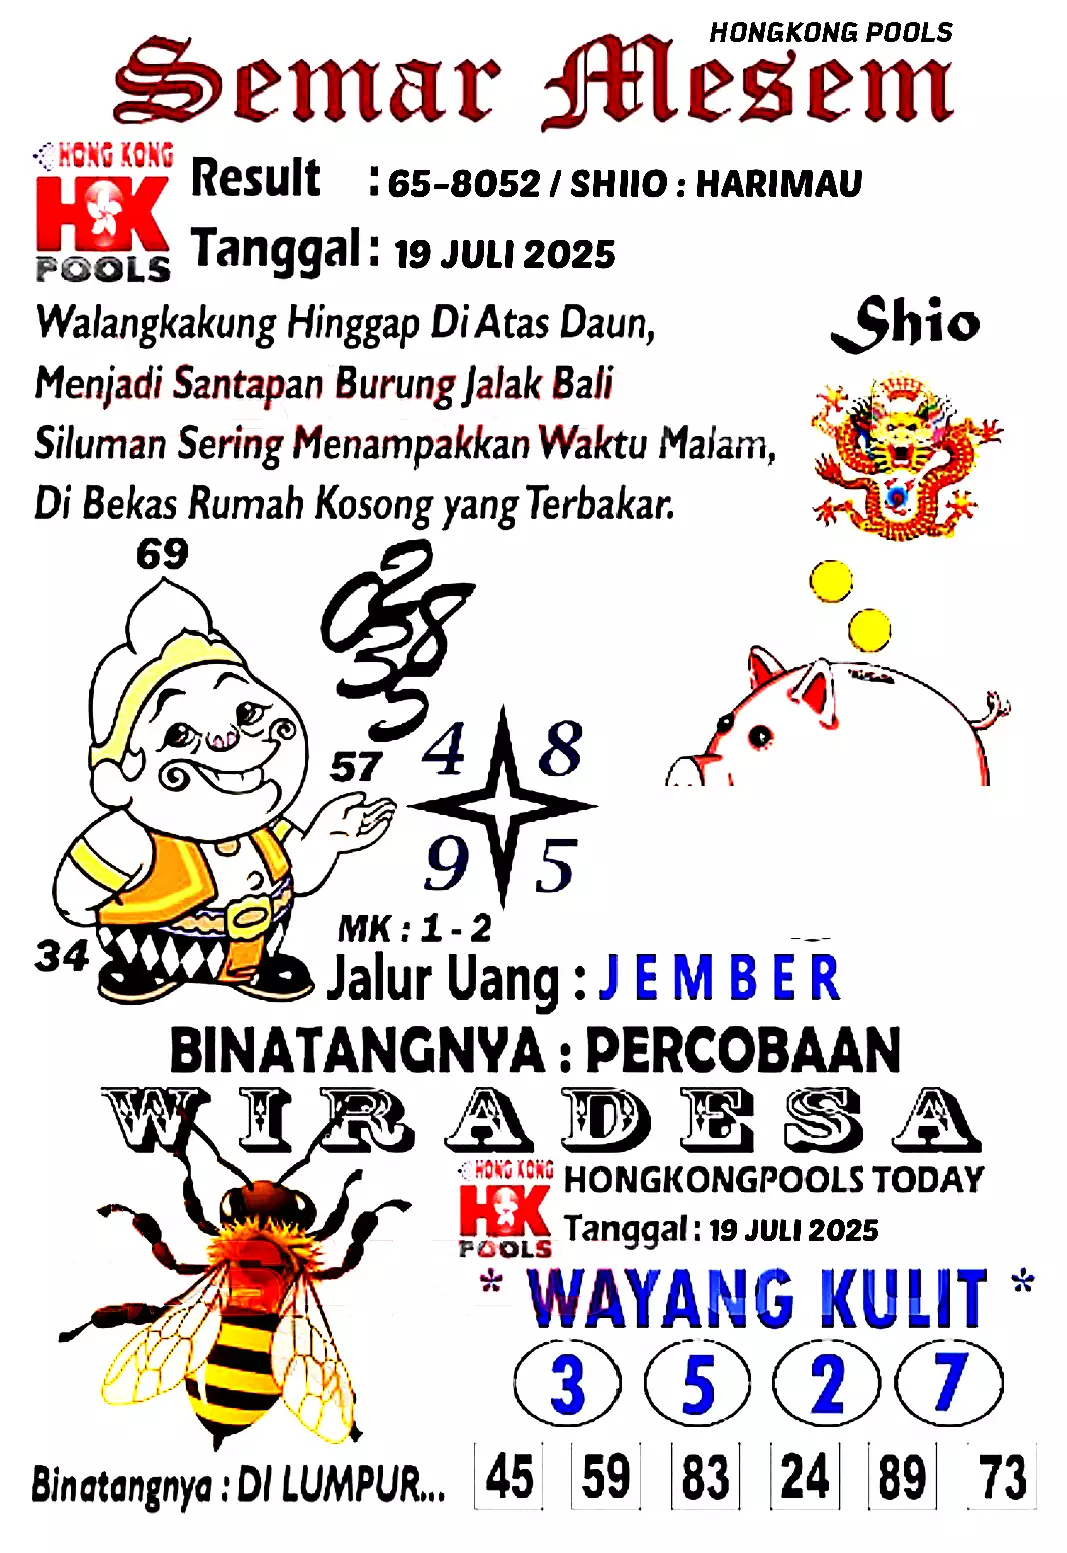 HONGKONG POOLS
Semar Mesem
HONG KONG
HK
POOLS
Result : 65-8052 / SHIIO : HARIMAU
Tanggal : 19 JULI 2025
Walangkakung Hinggap Di Atas Daun,
Menjadi Santapan Burung Jalak Bali
Siluman Sering Menampakkan Waktu Malam,
Di Bekas Rumah Kosong yang Terbakar.
Shio
69
0 2
3 8
5
57
4 8
9 5
34
MK : 1 - 2
Jalur Uang : J E M B E R
BINATANGNYA : PERCOBAAN
WIRADESA
HONG KONG
HK
POOLS
HONGKONGPOOLS TODAY
Tanggal : 19 JULI 2025
* WAYANG KULIT *
3 5 2 7
Binatangnya : DI LUMPUR...
45 59 83 24 89 73